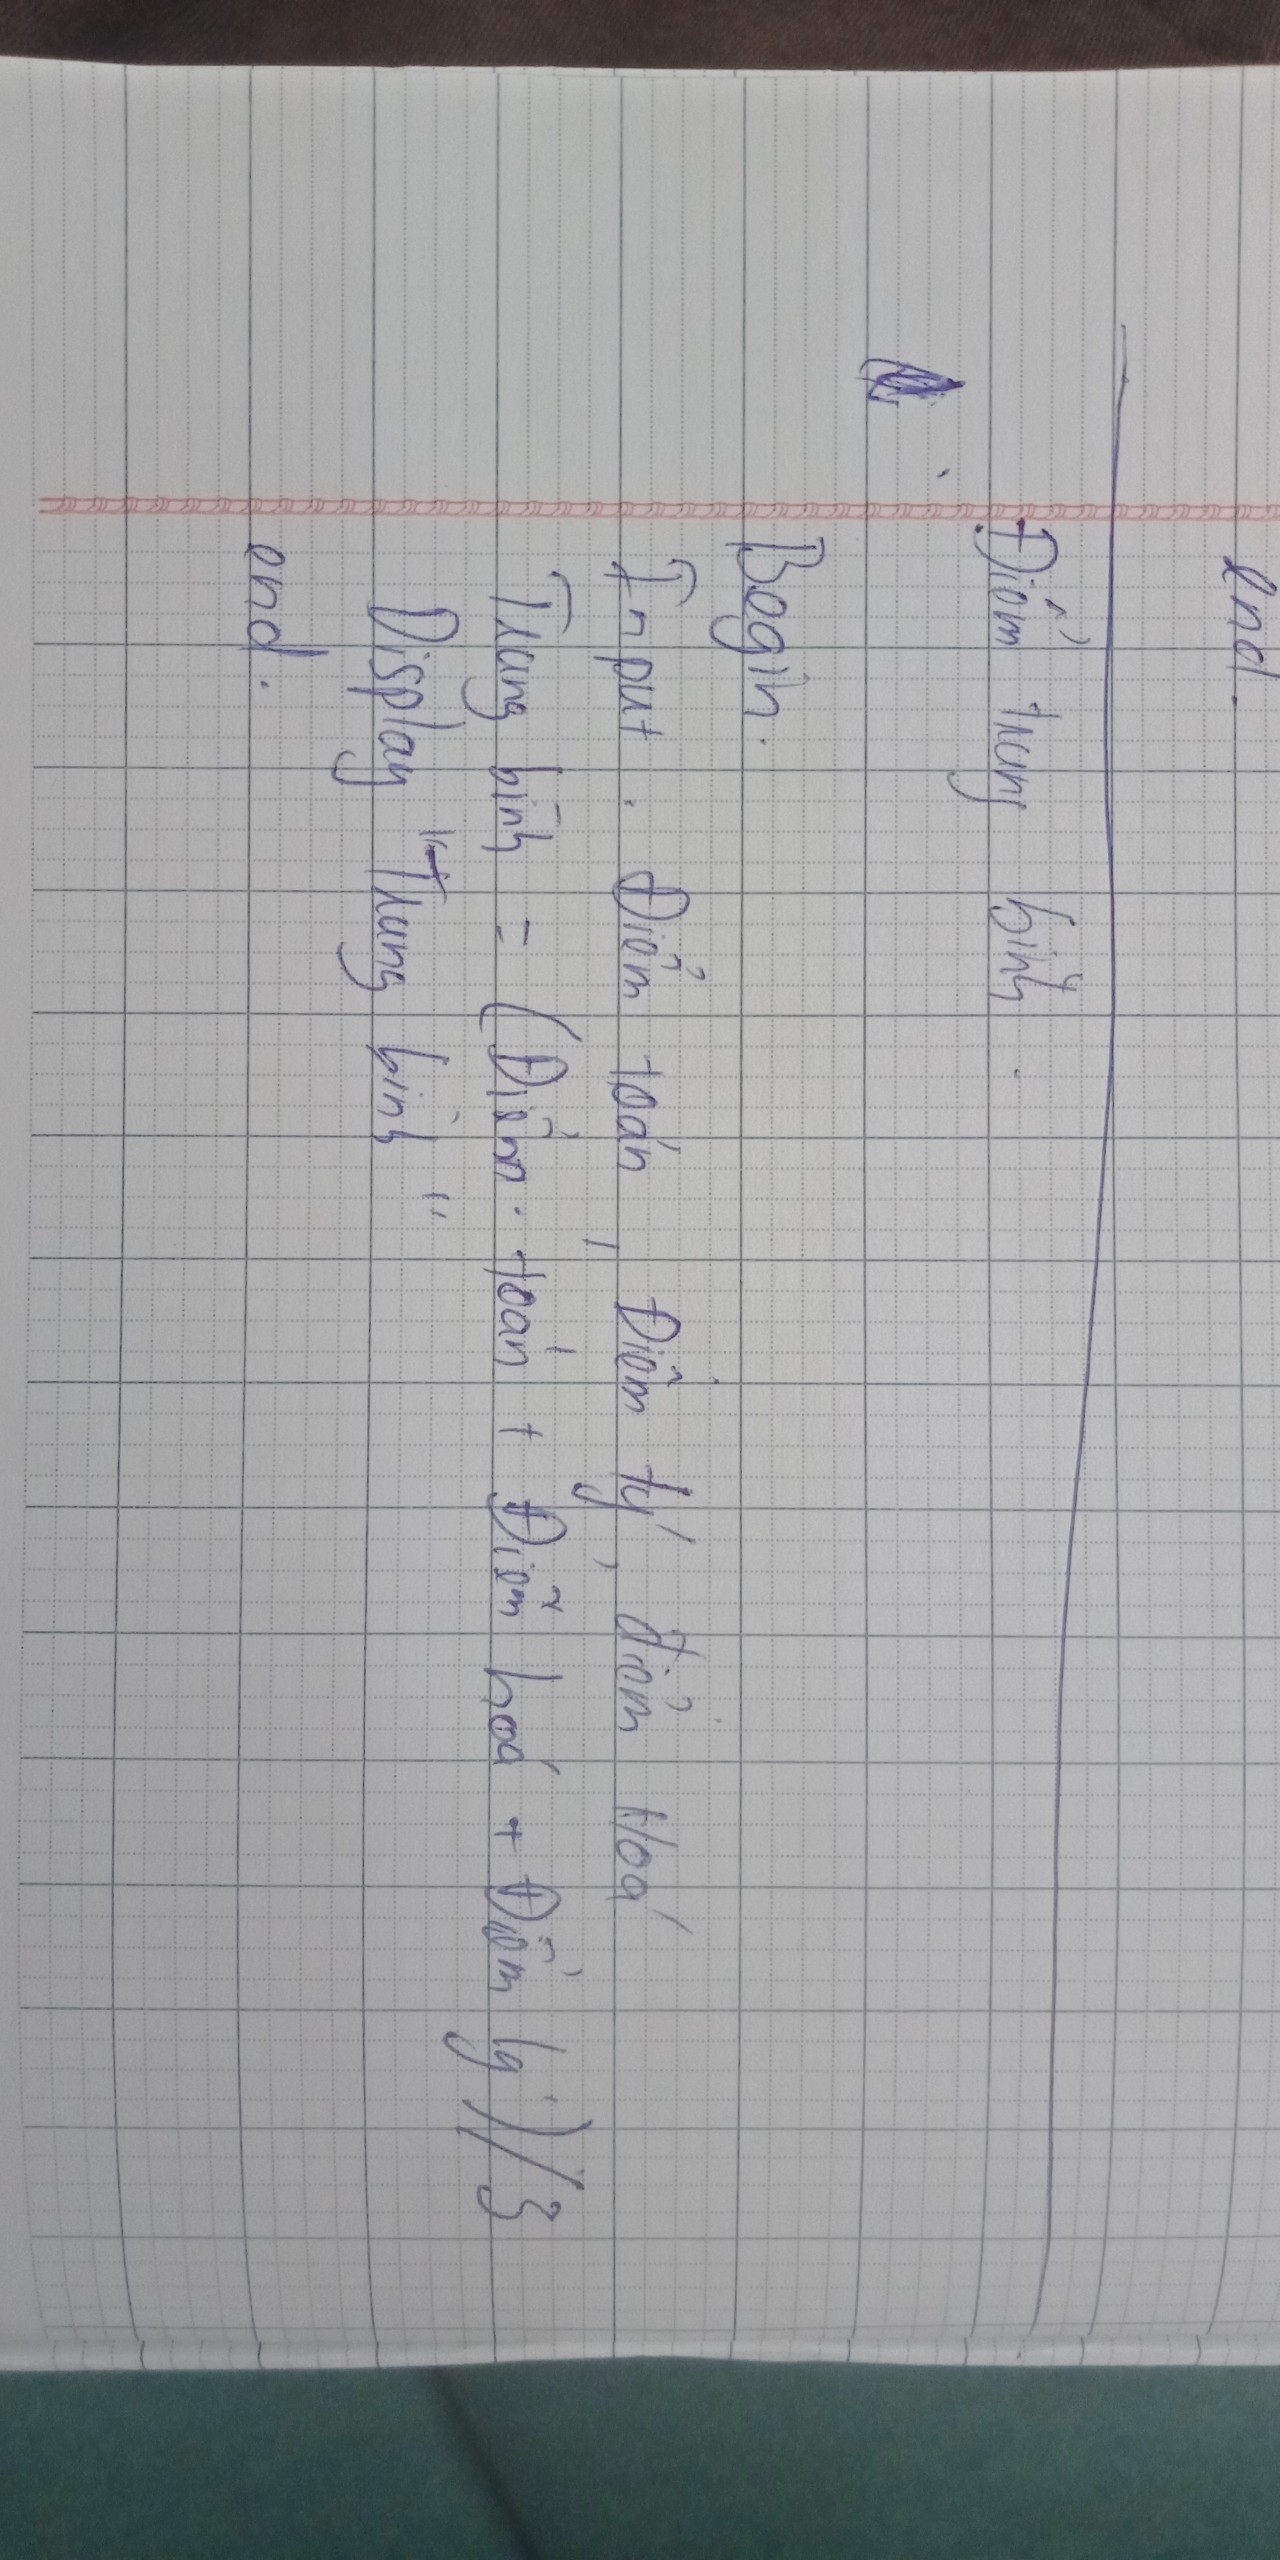 end.
Điểm trung bình.
Begin.
Input . Điểm toán, Điểm lý, điểm Hoá
Trung bình = (Điểm toán + Điểm hoá + Điểm lý)/3
Display "Trung bình"
end.